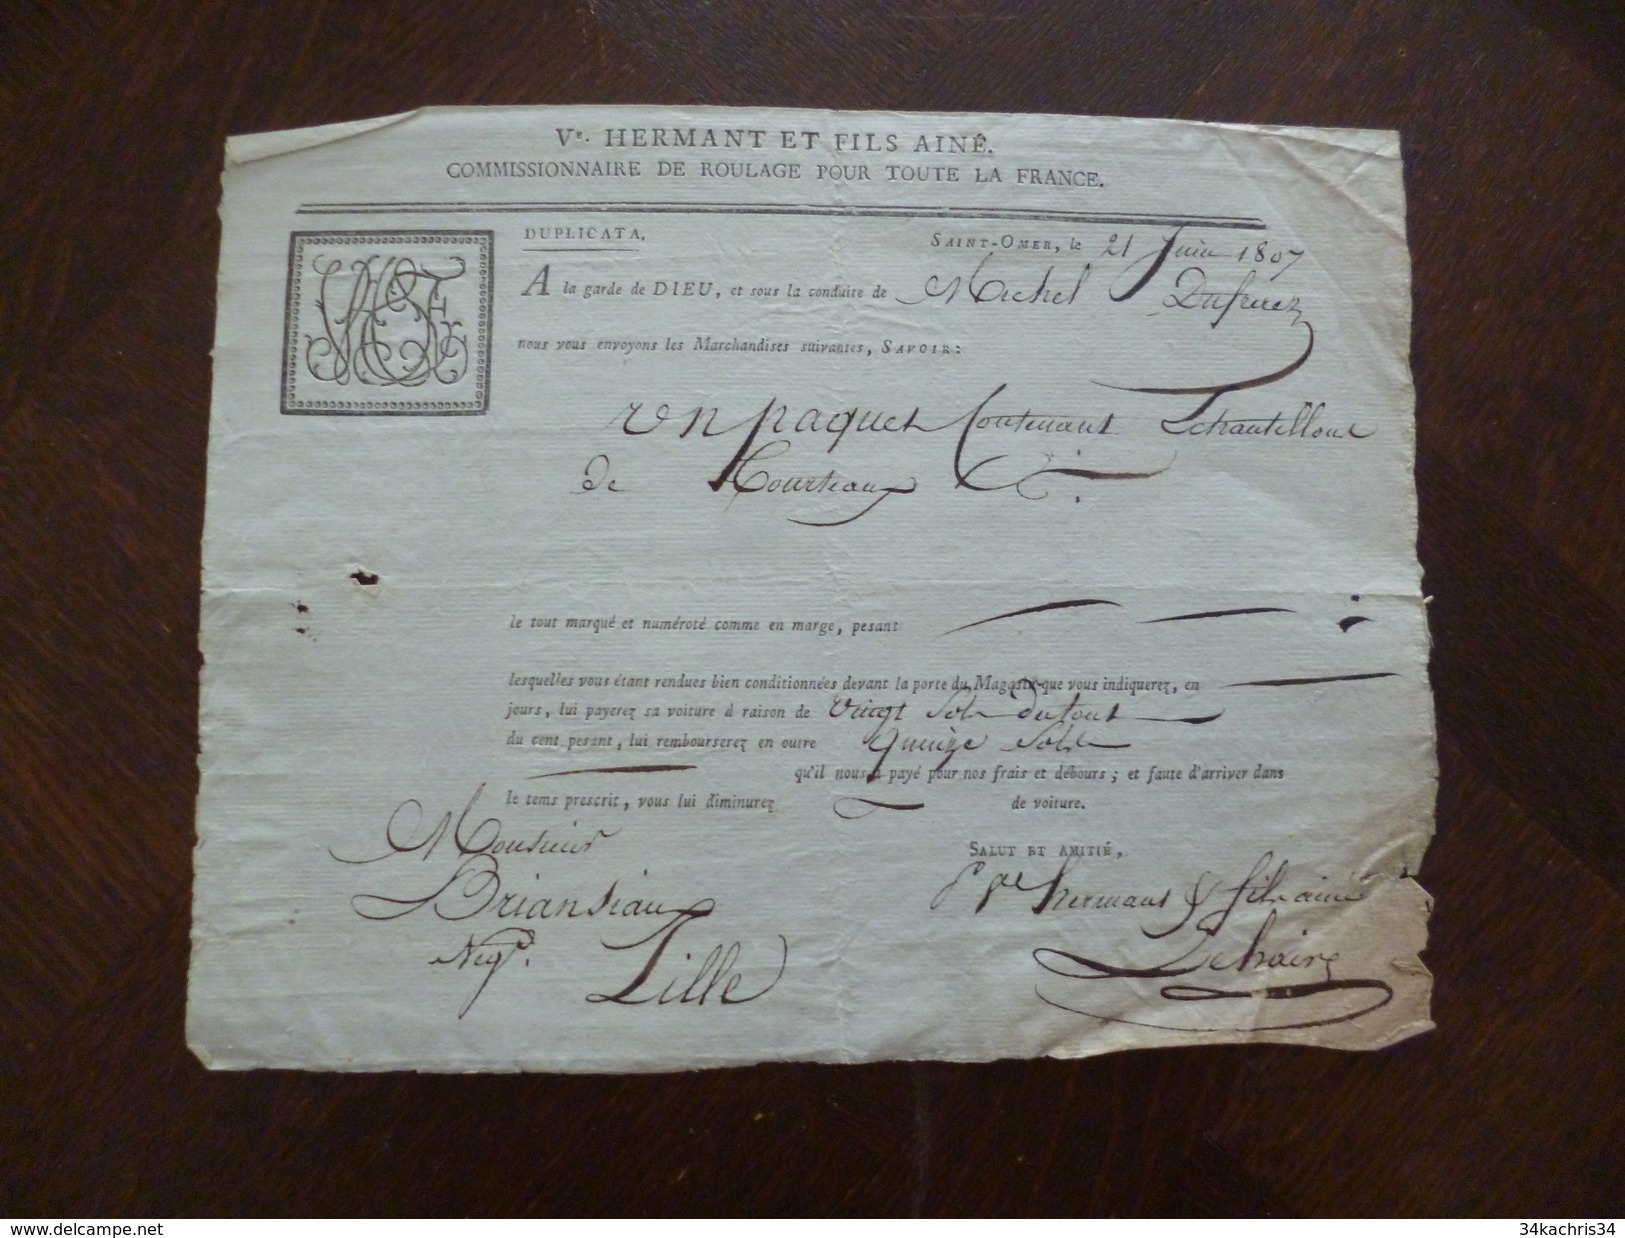 Ve. HERMANT ET FILS AINÊ.
COMMISSIONNAIRE DE ROULAGE POUR TOUTE LA FRANCE.
DUPLICATA.
SAINT-OMER, le 21 Juin 1807
A la garde de DIEU, et sous la conduite de Michel
nous vous envoyons les Marchandises suivantes, SAVOIR:
un paquet Contenant Echantillons
de Tourteaux
le tout marqué et numéroté comme en marge, pesant
lesquelles vous étant rendues bien conditionnées devant la porte du Magasin que vous indiquerez, en
jours, lui payerez sa voiture à raison de Vingt Sols du tout
du cent pesant, lui rembourserez en outre quinze Sols
qu'il nous a payé pour nos frais et débours; et faute d'arriver dans
le tems prescrit, vous lui diminurez de voiture.
Monsieur
SALUT ET AMITIÉ,
Briansiaux
hermant & fils ainé
Negt.
Lille
delcampe.com
34kachris34